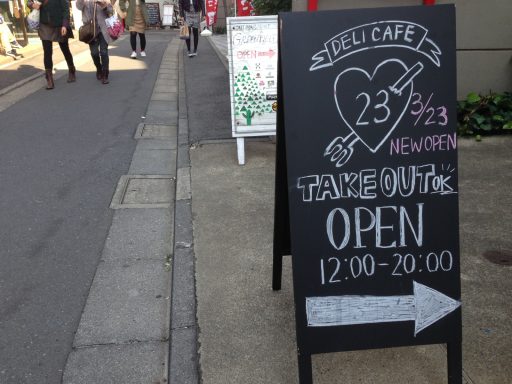 DELI CAFE
23
3/23
NEW OPEN
TAKE OUT OK
OPEN
12:00-20:00
OPEN